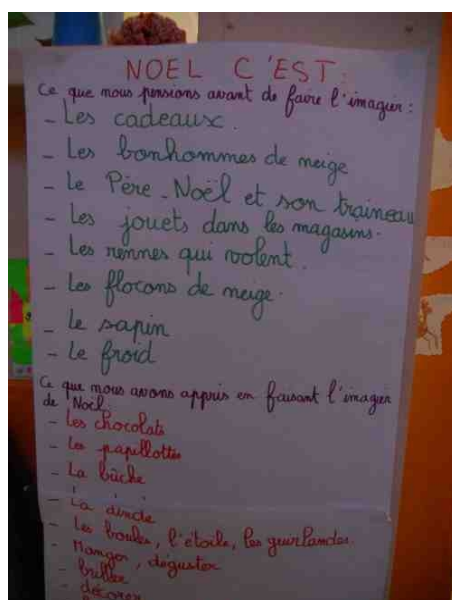 NOEL C'EST :
Ce que nous pensions avant de faire l'imagier :
- Les cadeaux.
- Les bonhommes de neige
- Le Père-Noël et son traineau
- Les jouets dans les magasins.
- Les rennes qui volent.
- Les flocons de neige.
- Le sapin
- Le froid
Ce que nous avons appris en faisant l'imagier
de Noël.
- Les chocolats
- Les papillottes
- La bûche
- La dinde
- Les boules, l'étoile, les guirlandes.
- Manger, déguster
- briller
- décorer